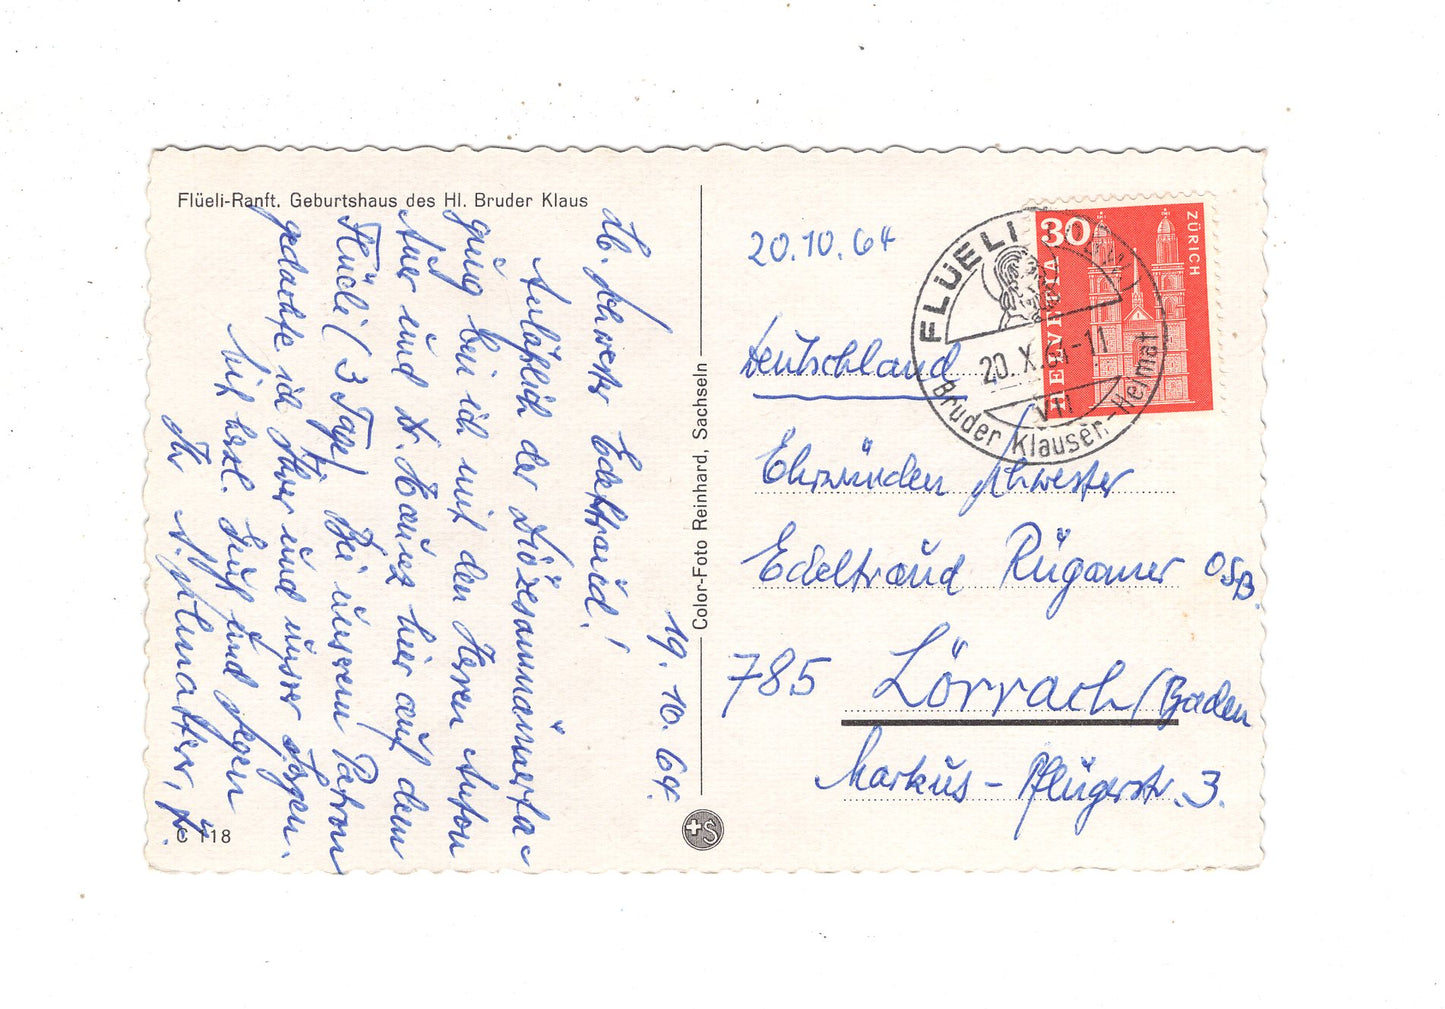 Flüeli-Ranft. Geburtshaus des Hl. Bruder Klaus
19. 10. 64.
Lb. Schwester Edeltraud!
Anläßlich der Diözesanmännerta=
gung bin ich mit den Herren Anton
Auer und Dr. Kaunz hier auf dem
Flüeli (3 Tage). Bei unserem Patron
gedachte ich Ihrer und unsrer Sorgen.
Mit herzl. Gruß und Segen
Ihr
C 118
Color-Foto Reinhard, Sachseln
+S
20.10.64
FLÜELI
20.X.64-11
VII
Bruder Klausen-Heimat
30
HELVETIA
ZÜRICH
Deutschland
Ehrwürden Schwester
Edeltraud Rügamer OSB.
785 Lörrach/Baden
Markus-Pflügerstr. 3.